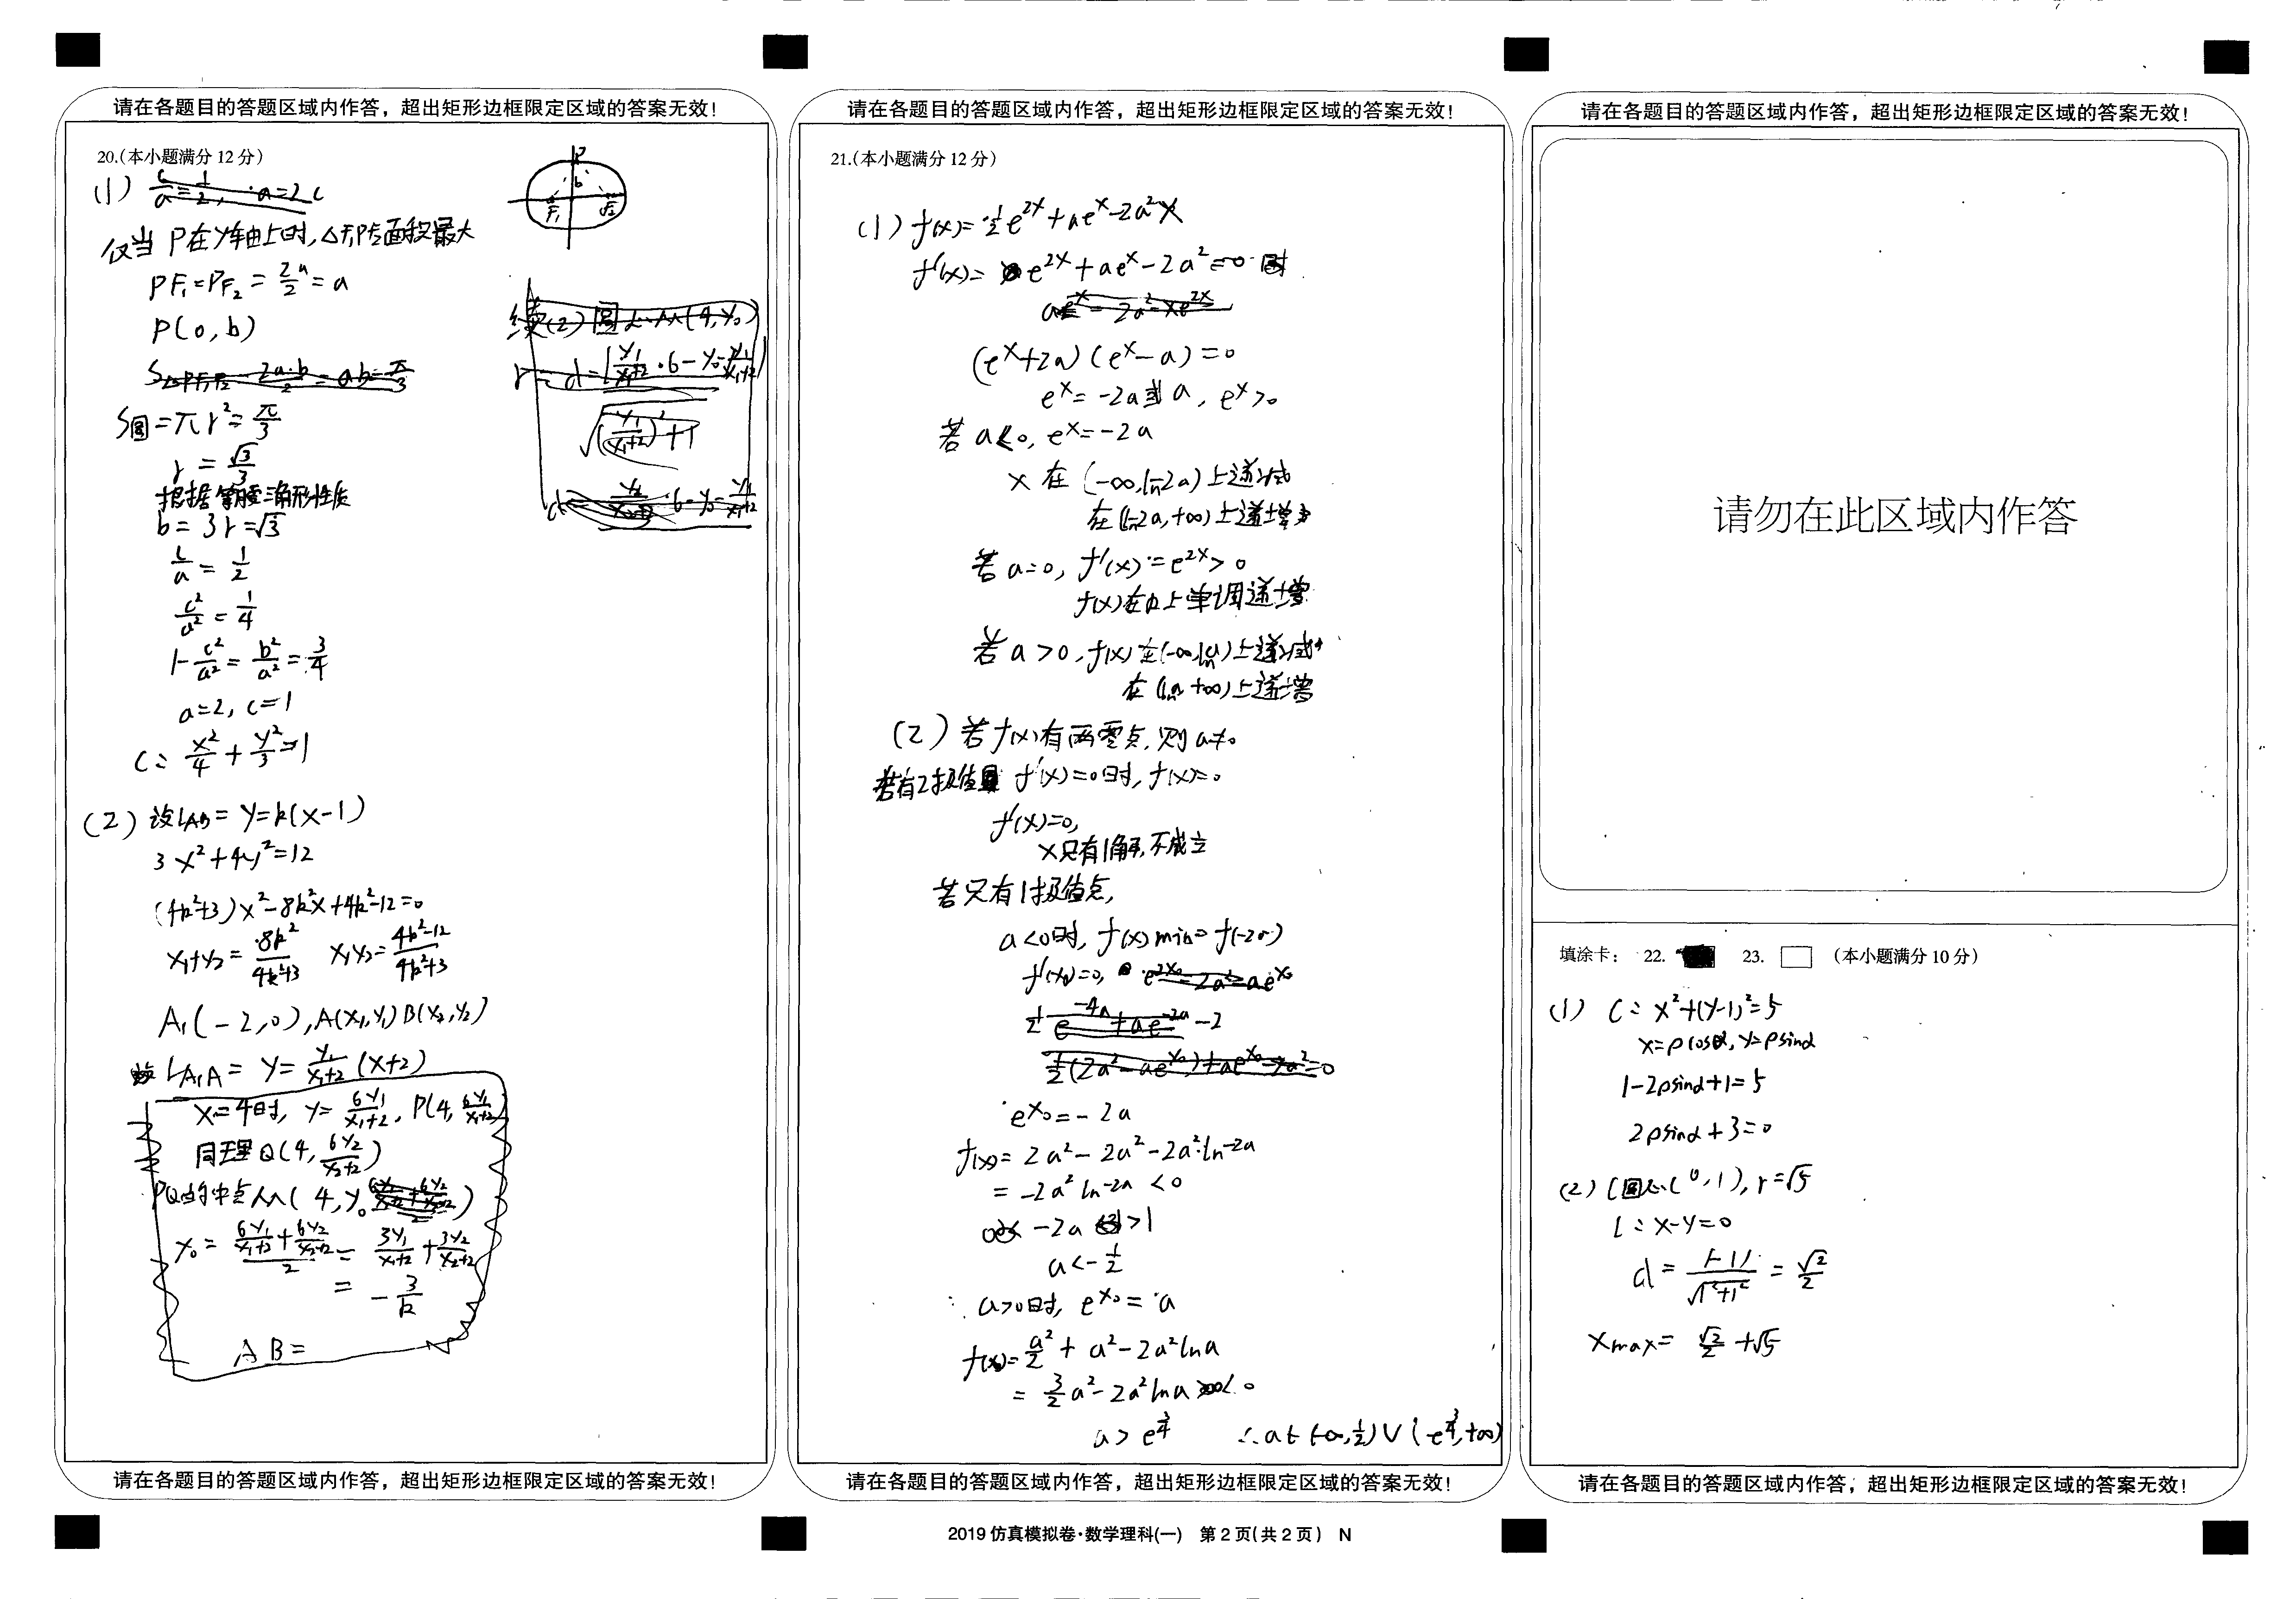 请在各题目的答题区域内作答，超出矩形边框限定区域的答案无效！
20.(本小题满分 12 分)
(1)
仅当 P在y轴上时,△F₁PF₂面积最大
PF₁=PF₂=2a/2=a
P(0,b)
S圆=πr²=π/3
r=√3/3
根据等腰三角形性质
b=3r=√3
c/a=1/2
c²/a²=1/4
1-c²/a²=b²/a²=3/4
a=2, c=1
C: x²/4+y²/3=1
(2) 设L_AB= y=k(x-1)
3x²+4y²=12
(4k²+3)x²-8k²x+4k²-12=0
x₁+x₂=8k²/(4k²+3) x₁x₂=(4k²-12)/(4k²+3)
A₁(-2,0),A(x₁,y₁)B(x₂,y₂)
L_A₁A= y=y₁/(x₁+2)(x+2)
x=4时, y=6y₁/(x₁+2), P(4,6y₁/(x₁+2))
同理Q(4,6y₂/(x₂+2))
PQ的中点M(4,y₀)
y₀=(6y₁/(x₁+2)+6y₂/(x₂+2))/2=3y₁/(x₁+2)+3y₂/(x₂+2)
=-3/k
AB=
P
b
F₁ F₂
请在各题目的答题区域内作答，超出矩形边框限定区域的答案无效！
请在各题目的答题区域内作答，超出矩形边框限定区域的答案无效！
21.(本小题满分 12 分)
(1) f(x)=½e^{2x}+ae^x-2a²x
f'(x)=e^{2x}+ae^x-2a²=0时
(e^x+2a)(e^x-a)=0
e^x=-2a或a, e^x>0
若a<0, e^x=-2a
x在(-∞,ln-2a)上递减
在(ln-2a,+∞)上递增
若a=0, f'(x)=e^{2x}>0
f(x)在R上单调递增
若a>0, f(x)在(-∞,lna)上递减
在(lna,+∞)上递增
(2) 若f(x)有两零点,则a≠0
若有2极值 f'(x)=0时, f(x)=0
f'(x)=0,
x只有1解,不成立
若只有1极值点,
a<0时, f(x)min=f(-2a)
f'(x₀)=0,
e^{x₀}=-2a
f(x)=2a²-2a²-2a²·ln-2a
=-2a²ln-2a<0
-2a>1
a<-½
a>0时, e^{x₀}=a
f(x₀)=a²/2+a²-2a²lna
=3/2a²-2a²lna<0
a>e^{3/4} ∴a∈(-∞,½)∪(e^{3/4},+∞)
请在各题目的答题区域内作答，超出矩形边框限定区域的答案无效！
2019 仿真模拟卷·数学理科(一) 第 2 页(共 2 页) N
请在各题目的答题区域内作答，超出矩形边框限定区域的答案无效！
请勿在此区域内作答
填涂卡： 22. 23. □ (本小题满分 10 分)
(1) C: x²+(y-1)²=5
x=ρcosα, y=ρsinα
1-2ρsinα+1=5
2ρsinα+3=0
(2) C圆心(0,1), r=√5
l: x-y=0
d=|-1|/√(1²+1²)=√2/2
x max=√2/2+√5
请在各题目的答题区域内作答，超出矩形边框限定区域的答案无效！